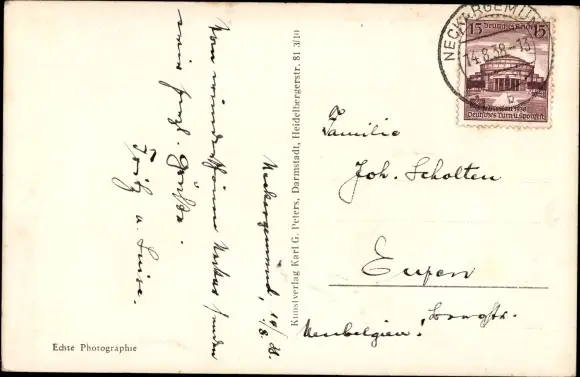 Neckargemünd, 14/8. 38.
Vom wunderschönen Neckar senden
viele frdl. Grüsse.
Fritz u. Luise.
Echte Photographie
Kunstverlag Karl G. Peters, Darmstadt, Heidelbergerstr. 81 3/10
NECKARGEMÜND
14.8.38-13
b
15 Deutsches Reich 15
Deutsches Turn u. Sportfest
Familie
Joh. Scholten
Eupen
Langstr.
Neubelgien!